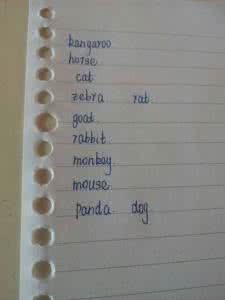 kangaroo
horse
cat
zebra rat
goat
rabbit
monkey
mouse
panda dog